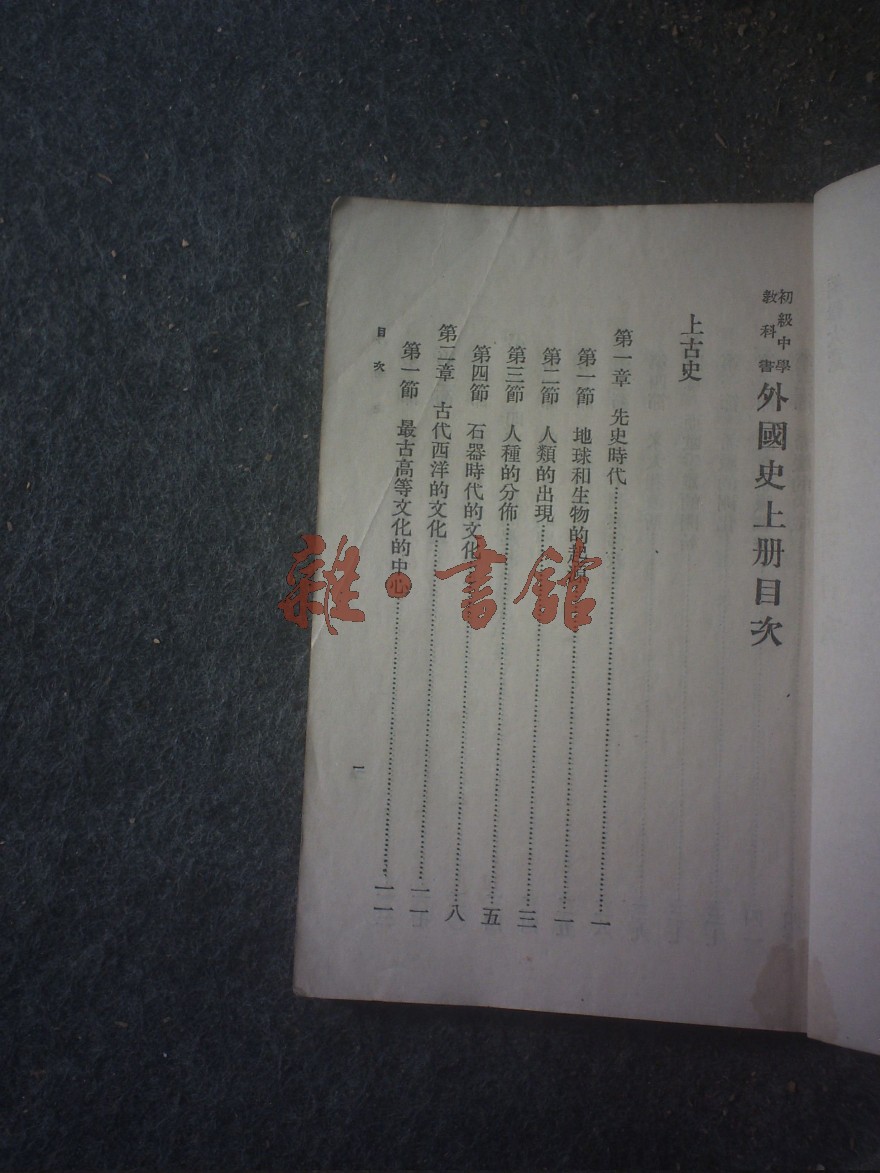 初級中學
教科書
外國史上册目次
上古史
第一章 先史時代……一
第一節 地球和生物的起源……一
第二節 人類的出現……三
第三節 人種的分佈……五
第四節 石器時代的文化……八
第二章 古代西洋的文化……一一
第一節 最古高等文化的中心……一一
目次
一
雜·書館